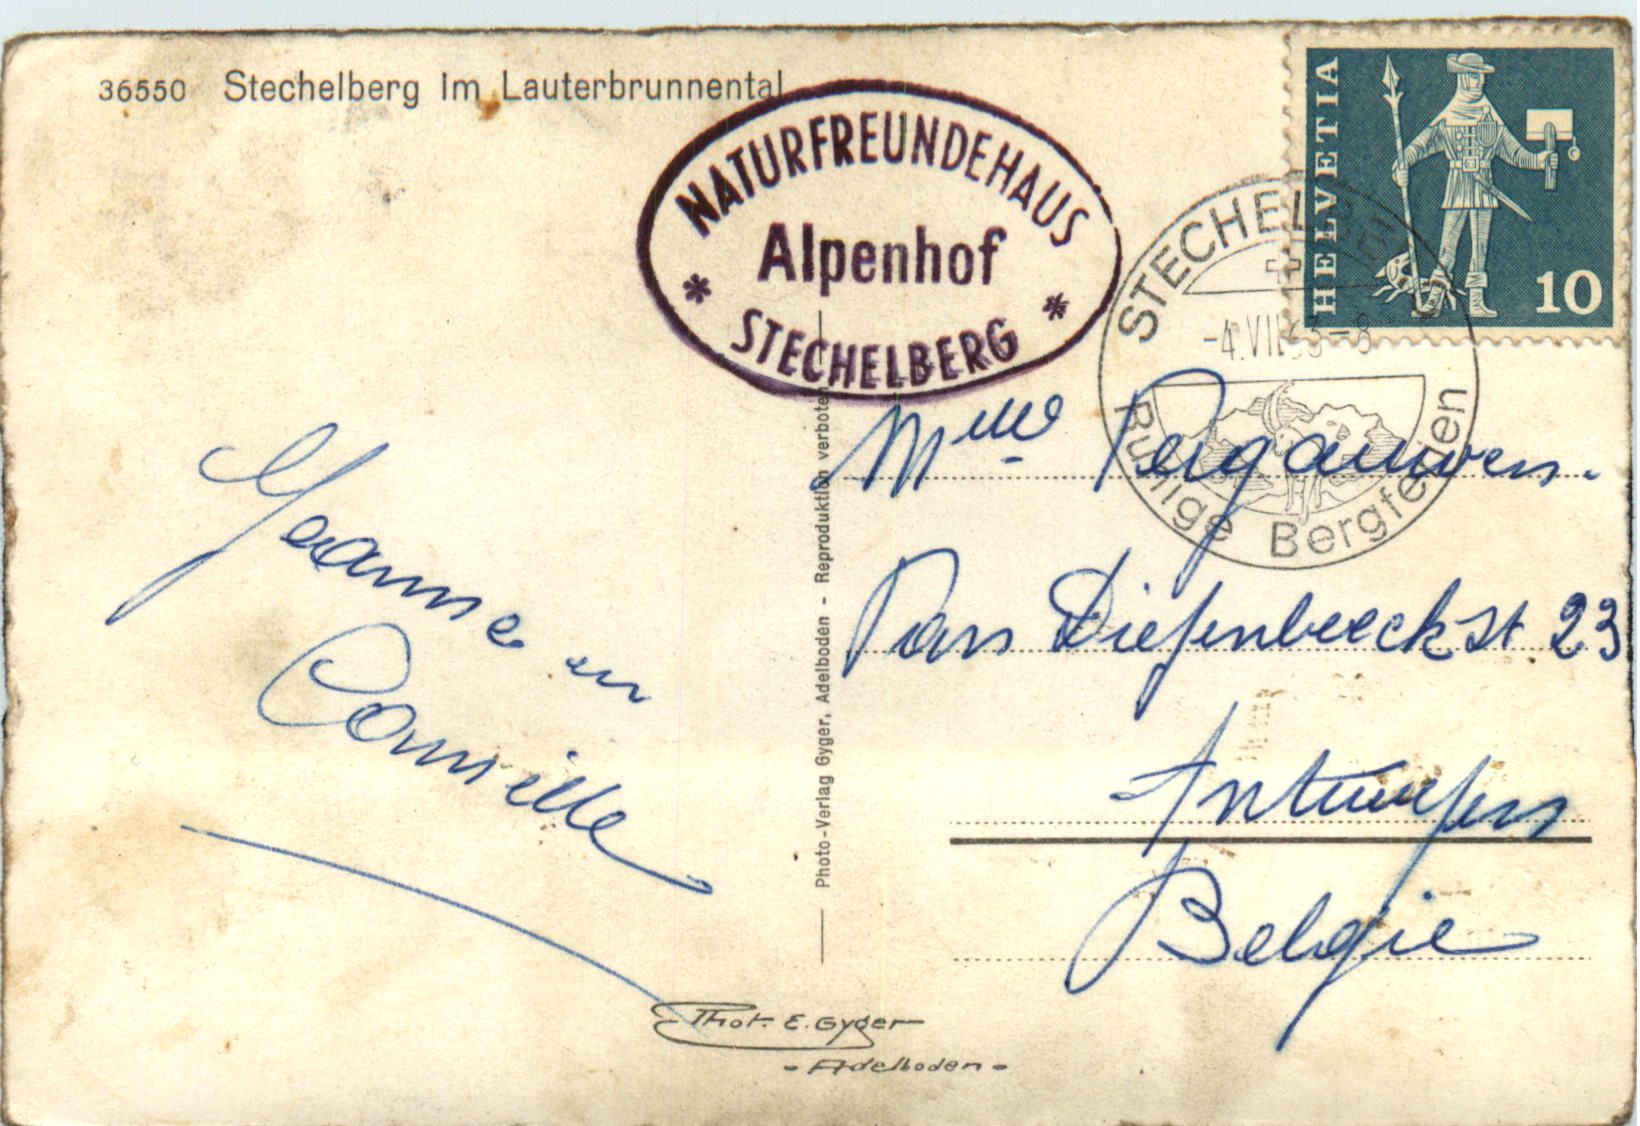 36550 Stechelberg im Lauterbrunnental
NATURFREUNDEHAUS
Alpenhof
* STECHELBERG *
HELVETIA
10
STECHELBERG
-4.VII.63-8
Ruhige Bergferien
Jeanne en
Camille
Photo-Verlag Gyger, Adelboden - Reproduktion verboten
Mme Pergauwen.
Van Diepenbeeckst 23
Antwerpen
Belgie
Phot. E. Gyger
- Adelboden -